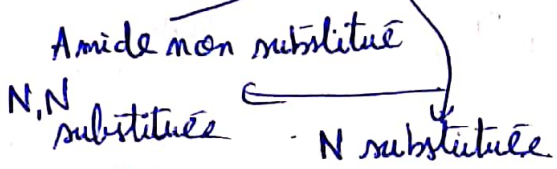 Amide non substitué
N,N
substituée
N substituée